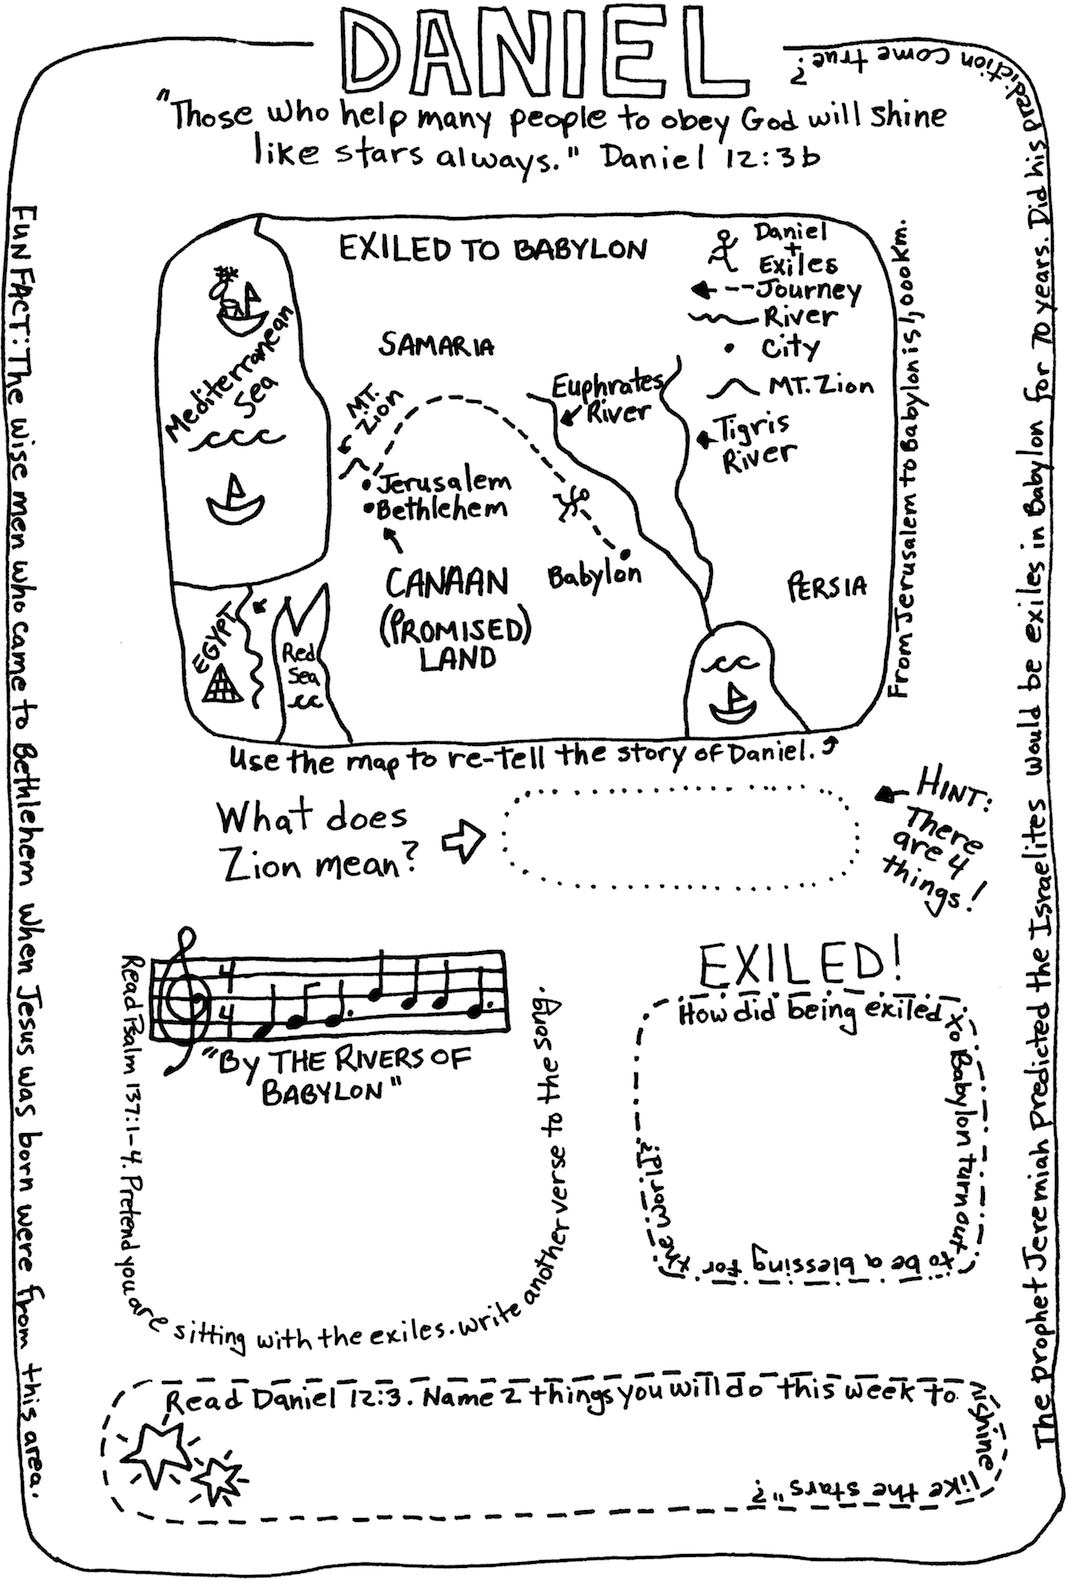 DANIEL
"Those who help many people to obey God will shine
like stars always." Daniel 12:3b
EXILED TO BABYLON
Daniel
+
Exiles
Journey
River
City
MT. Zion
Mediterranean
Sea
SAMARIA
MT.
Zion
Euphrates
River
Tigris
River
Jerusalem
Bethlehem
Babylon
CANAAN
(PROMISED)
LAND
PERSIA
EGYPT
Red
Sea
From Jerusalem to Babylon is 1,000 km.
Use the map to re-tell the story of Daniel.
What does
Zion mean?
HINT:
There
are 4
things!
4
4
"BY THE RIVERS OF
BABYLON"
Read Psalm 137:1-4. Pretend you are sitting with the exiles. write another verse to the song.
EXILED!
How did being exiled to Babylon turn out to be a blessing for the world?
Read Daniel 12:3. Name 2 things you will do this week to "shine like the stars"?
FUN FACT: The wise men who came to Bethlehem when Jesus was born were from this area.
The prophet Jeremiah predicted the Israelites would be exiles in Babylon for 70 years. Did his prediction come true?